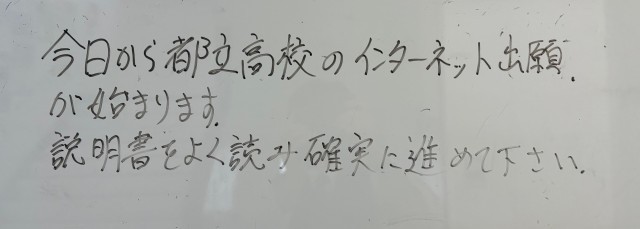 今日から都立高校のインターネット出願
が始まります。
説明書をよく読み確実に進めて下さい。